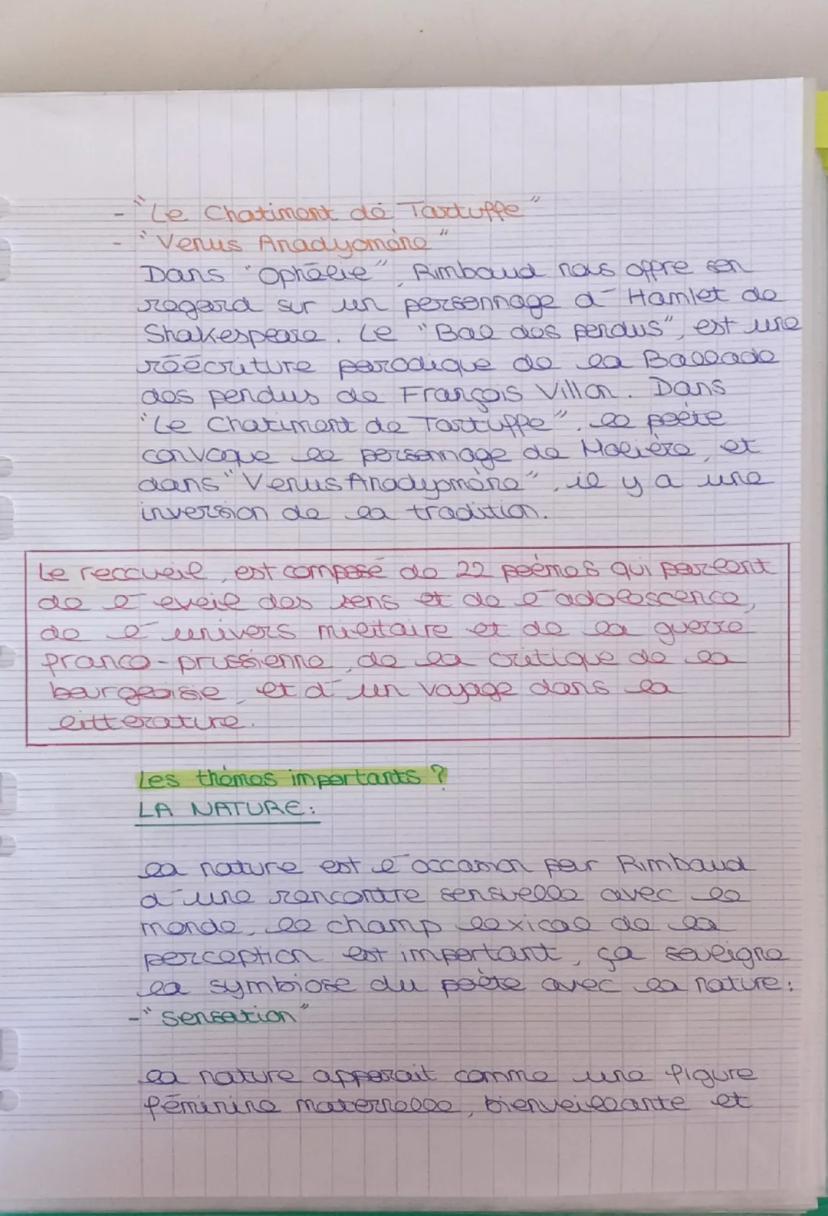 - "Le Chatiment de Tartuffe"
- "Venus Anadyomène"
Dans "Ophélie", Rimbaud nous offre son
regard sur un personnage d'Hamlet de
Shakespeare. Le "Bal des pendus", est une
réécriture parodique de la Ballade
des pendus de François Villon. Dans
"Le Chatiment de Tartuffe", le poète
convoque le personnage de Molière, et
dans "Venus Anadyomène", il y a une
inversion de la tradition.
Le reccueil, est composé de 22 poèmes qui parlent
de l'eveil des sens et de l'adolescence,
de l'univers militaire et de la guerre
franco-prussienne, de la critique de la
bourgeoisie, et d'un voyage dans la
litterature.
Les thèmes importants ?
LA NATURE:
la nature est l'occasion par Rimbaud
d'une rencontre sensuelle avec le
monde, le champ lexical de la
perception est important, ça souligne
la symbiose du poète avec la nature:
- "Sensation"
la nature apparait comme une figure
féminine maternelle, bienveillante et